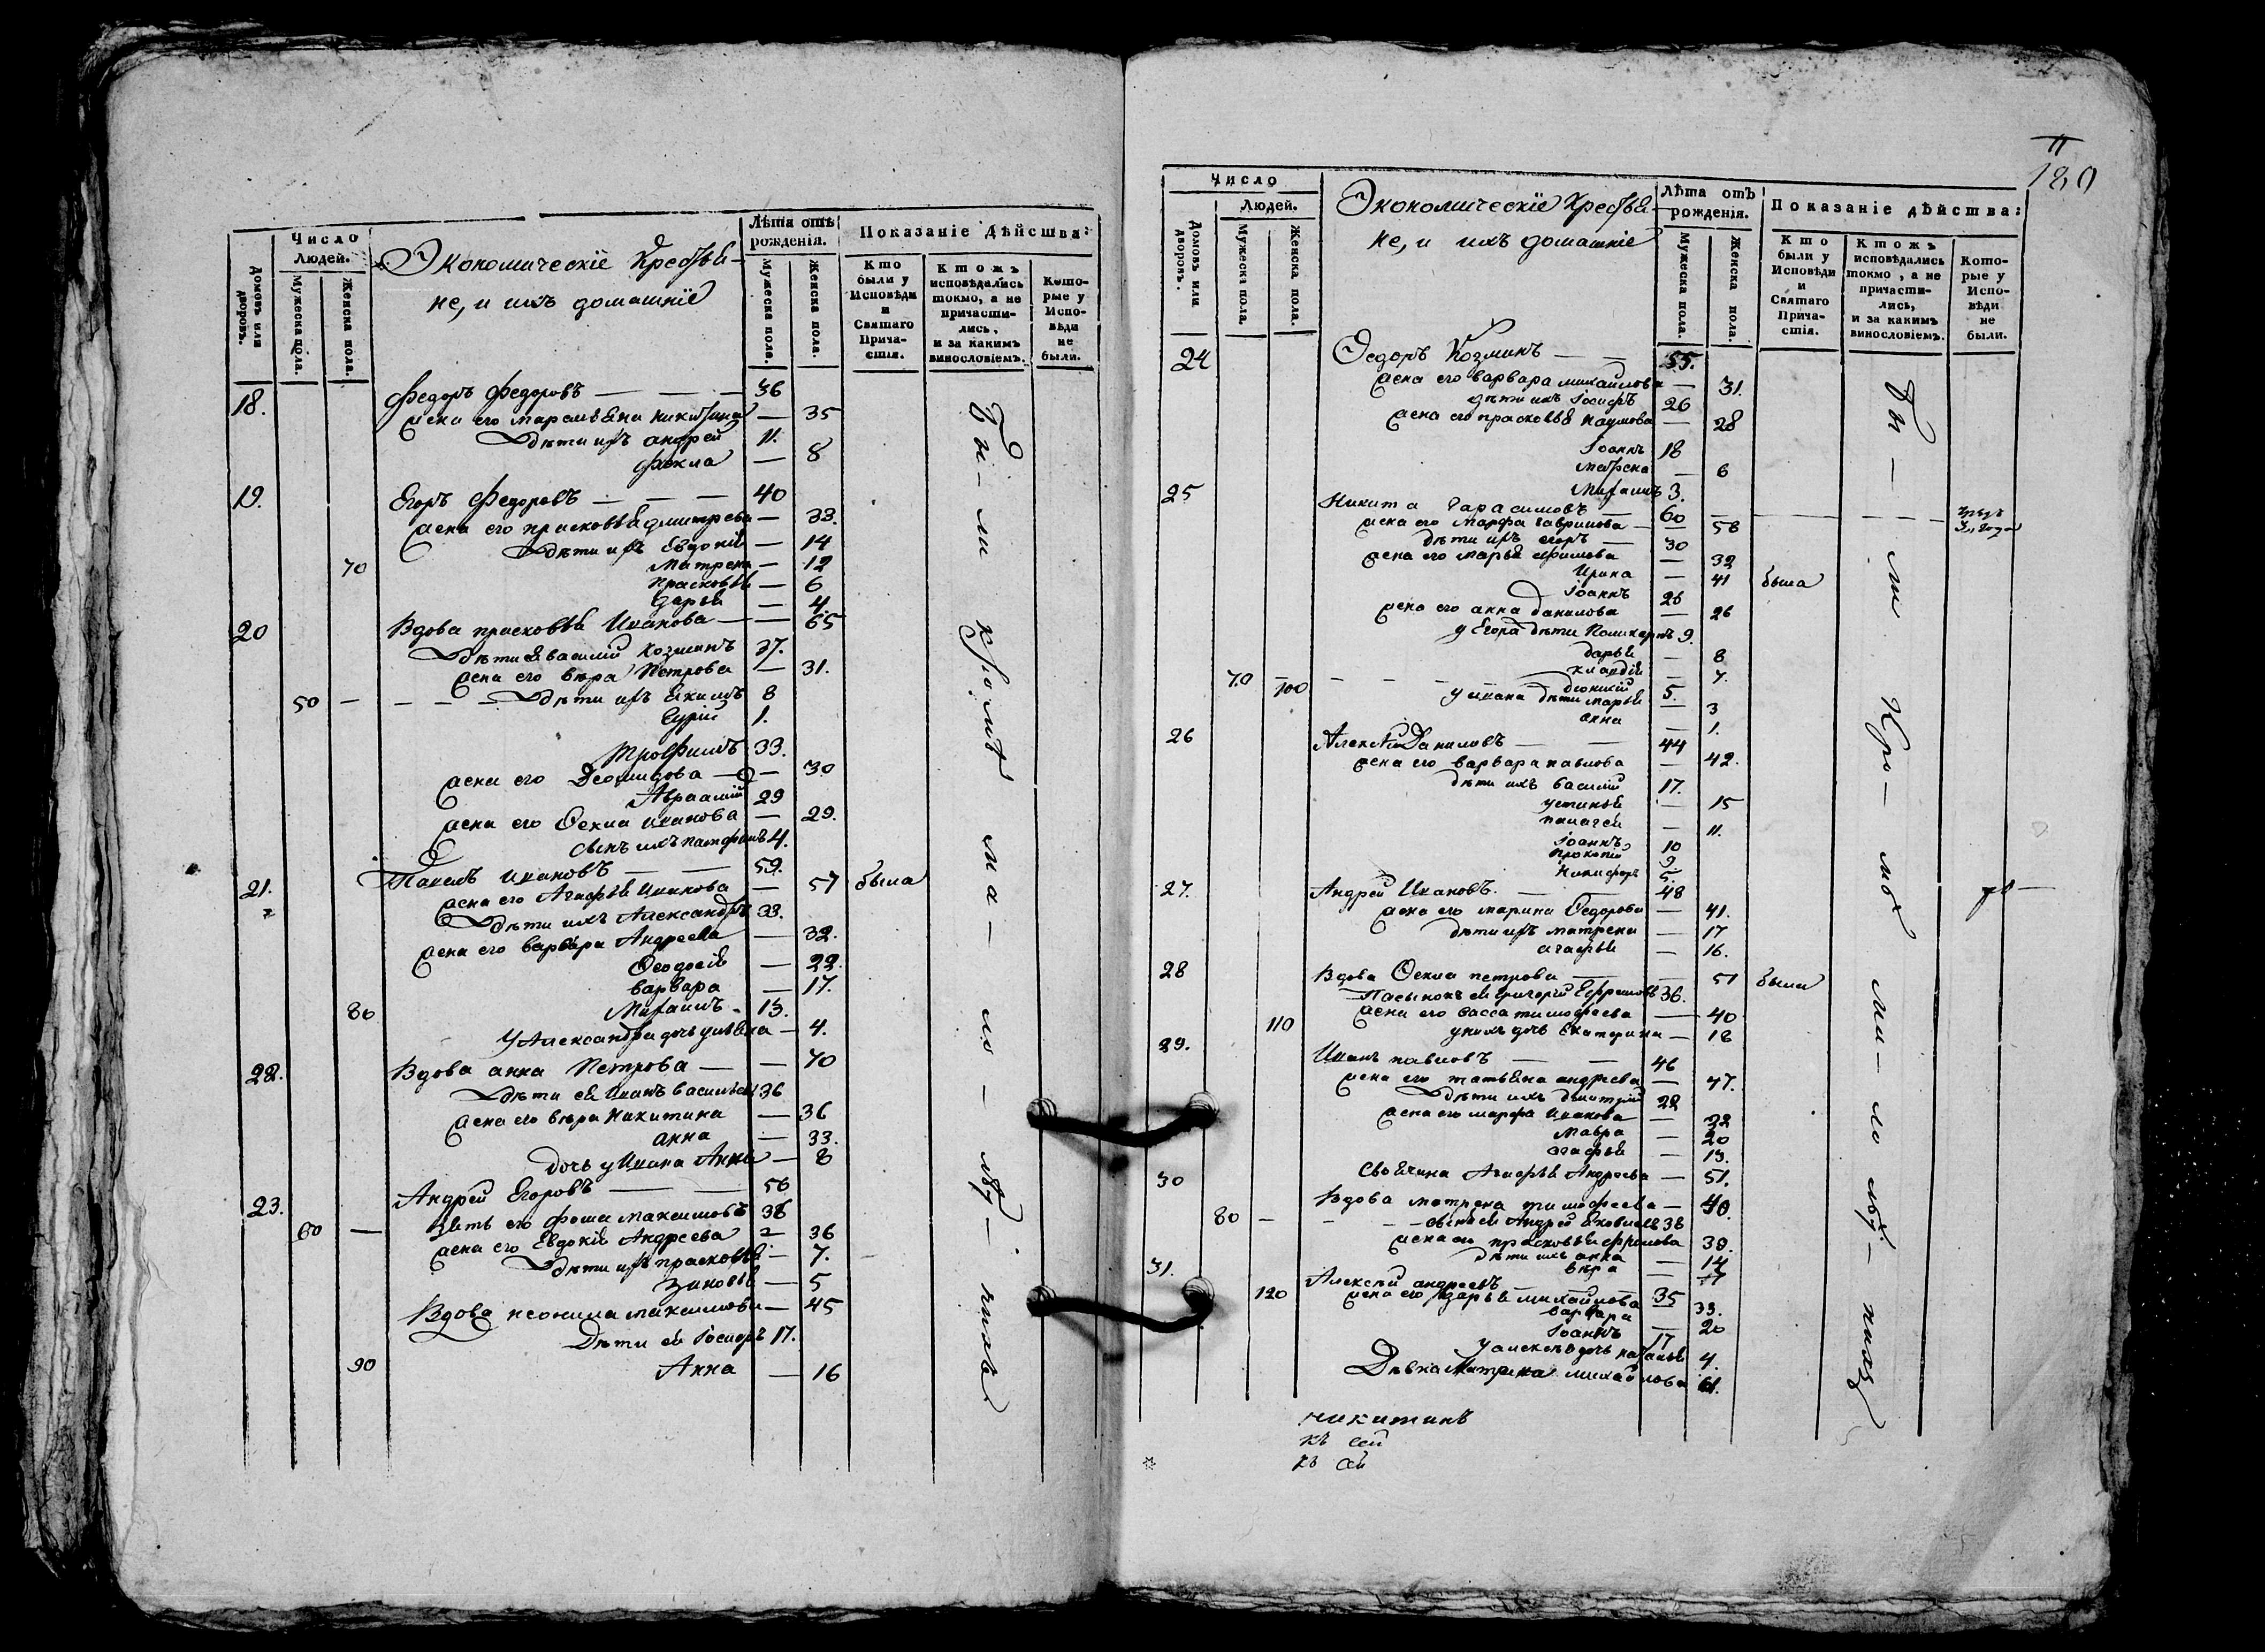 Число
Людей.
Домовъ или дворовъ.
Мужеска пола.
Женска пола.
Экономическіе Крестья-
не, и ихъ домашніе
Лѣта отъ
рожденія.
Мужеска пола.
Женска пола.
Показаніе дѣйства:
Кто были у Исповѣди и Святаго Прича-стія.
Ктожъ исповѣдались токмо, а не причасти-лись, и за какимъ винословіемъ.
Кото-рые у Испо-вѣди не были.
18. Федоръ Федоровъ — 36
жена его Никитина — 35
дѣти ихъ Андрей 11.
Фекла — 8
19. Егоръ Федоровъ — 40
жена его Прасковья Дмитрева — 33.
дѣти ихъ Евдокія — 14
70 Матрена — 12
Прасковья — 6
Дарья — 4.
20 Вдова Прасковья Иванова — 65
дѣти ея Василій Козминъ 37.
жена его Вѣра Петрова — 31.
50 — дѣти ихъ Екимъ 8
Гурій 1.
Трофимъ 33.
жена его — 30
Авраамій 29
жена его Ѳекла Иванова — 29.
сынъ ихъ 4.
21. Иановъ — 59.
жена его Агафья Иванова — 57 была
дѣти ихъ Александръ 33.
жена его Варвара Андреева — 32.
Ѳеодосія — 22.
Варвара — 17.
80 Михаилъ 13.
у Александра дочь — 4.
22. Вдова Анна Петрова — 70
дѣти ея Иванъ Васильевъ 36
жена его Вѣра Никитина — 36
Анна — 33.
дочь у Ивана Анна — 8
23. Андрей Егоровъ — 56
зять его Фома Максимовъ 38
60 — жена его Евдокія Андреева — 36
дѣти ихъ Прасковья — 7.
Зиновья — 5
Вдова Неонила Максимова — 45
Дѣти ея Іосифъ 17.
90 Анна — 16
Бы-ли кромѣ ма-ло-лѣ-тныхъ
180
Число
Людей.
Домовъ или дворовъ.
Мужеска пола.
Женска пола.
Экономическіе Крестья-
не, и ихъ домашніе
Лѣта отъ
рожденія.
Мужеска пола.
Женска пола.
Показаніе дѣйства:
Кто были у Исповѣди и Святаго Прича-стія.
Ктожъ исповѣдались токмо, а не причасти-лись, и за какимъ винословіемъ.
Кото-рые у Испо-вѣди не были.
24 Ѳедоръ Козминъ — 55.
жена его Варвара Михайлова — 31.
дѣти ихъ Іосифъ 26
жена его Прасковья Наумова — 28
Іоаннъ 18
Матрена — 6
Михаилъ 3.
25 Никита Гарасимовъ — 60
жена его Марфа Гаврилова — 58
дѣти ихъ Егоръ — 30
жена его Марья Ефимова — 32
Ирина — 41 была
Іоаннъ 26
жена его Анна Данилова — 26
у Егора дѣти Поликарпъ 9
Дарья — 8
Клавдія — 7.
70 100 Діонисій 5.
у Ивана дѣти Марья — 3
Анна — 1.
26 Алексѣй Даниловъ — 44
жена его Варвара Павлова — 42.
дѣти ихъ Василій 17.
Устинья — 15
Палагея — 11.
Іоаннъ 10
Прокопій 9
Никифоръ 5.
27. Андрей Ивановъ. — 48
жена его Марина Ѳедорова — 41.
дѣти ихъ Матрена — 17
Агафья — 16.
28 Вдова Ѳекла Петрова — 51 была
Пасынокъ ея Григорій Ефремовъ 36.
жена его Васса Тимофеева — 40
110 у нихъ дочь Екатерина — 18
29. Иванъ Павловъ — 46
жена его Татьяна Андреева — 47.
дѣти ихъ Дмитрій 22
жена его Марфа Иванова — 22
Мавра — 20
Агафья — 13.
Своячина Агафья Андреева — 51.
30 Вдова Матрена Тимофеева — 70.
80 — сынъ ея Андрей Яковлевъ 38
жена его Прасковья Ефимова 38.
дѣти ихъ Анна — 14
Вѣра — 11
31. Алексѣй Андреевъ — 35
120 жена его Дарья Михайлова — 33.
Варвара — 20
Іоаннъ 17
у Алексѣя дочь Наталья 4.
Дѣвка Матрена Михайлова 61.
Бы-ли Кро-мѣ ма-ло-лѣ-тныхъ
Никитинъ